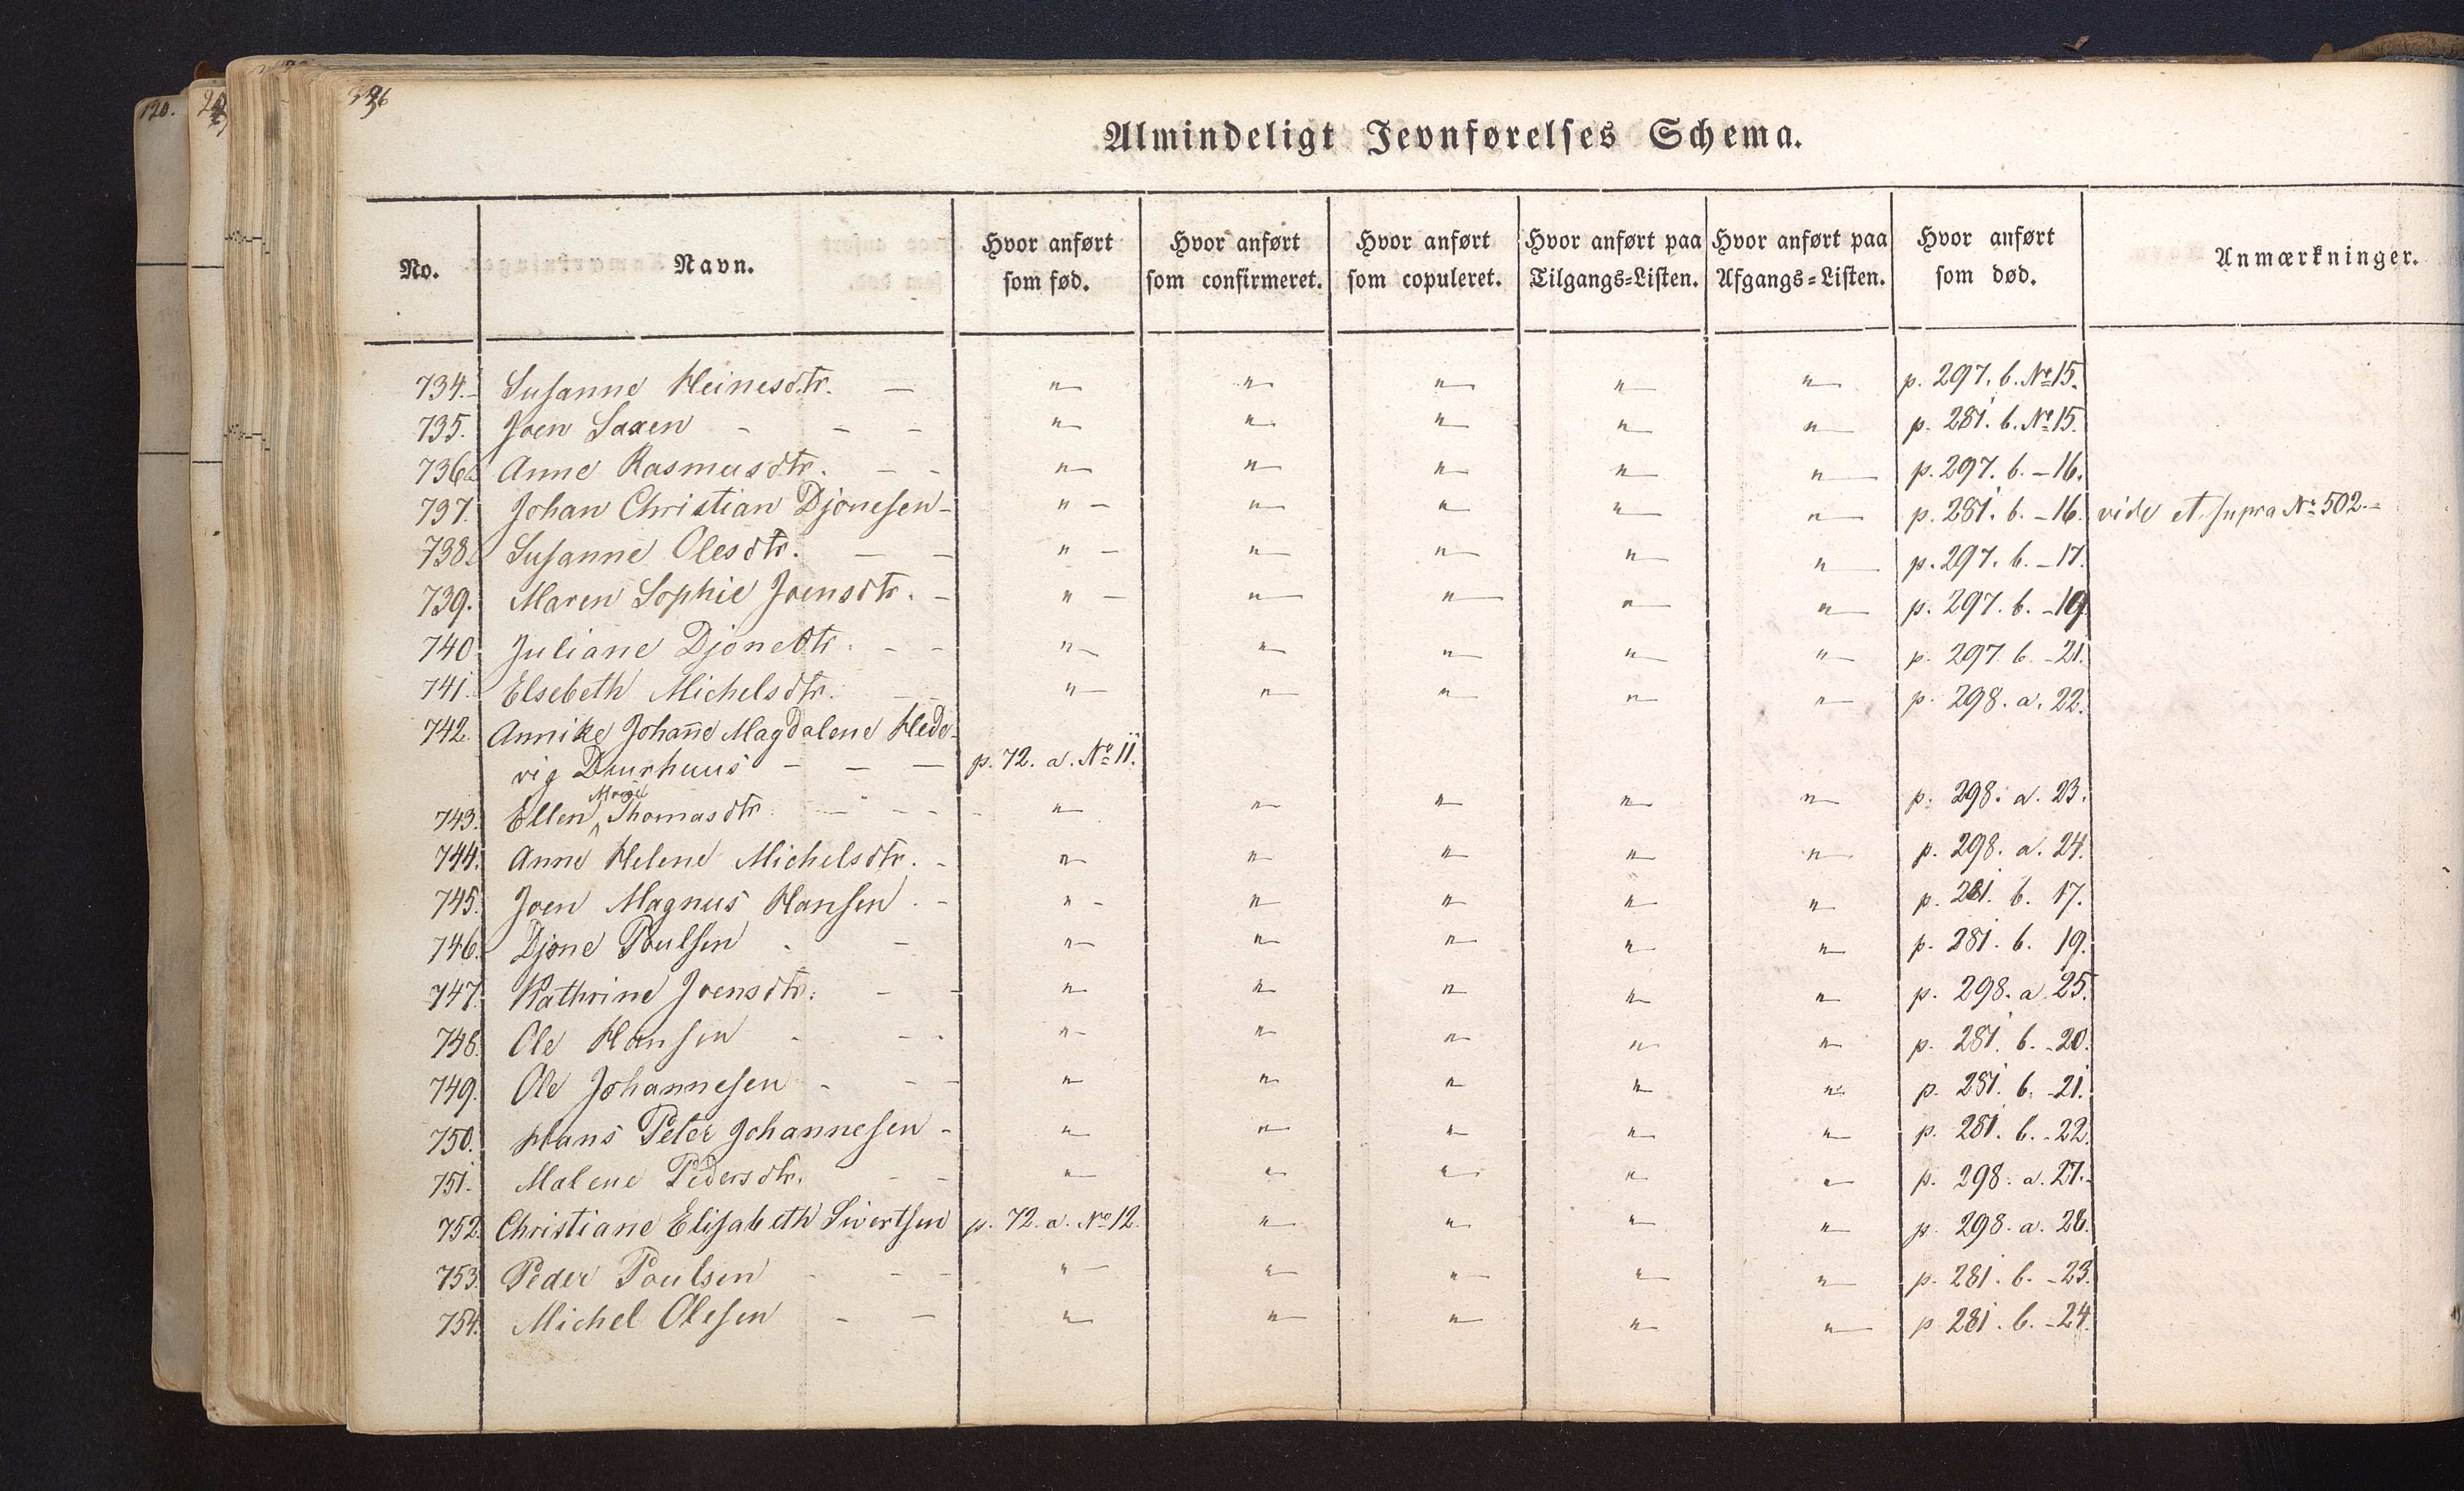 Almindeligt Jevnførelses Schema.
No. Navn. Hvor anført som fød. Hvor anført som confirmeret. Hvor anført som copuleret. Hvor anført paa Tilgangs-Listen. Hvor anført paa Afgangs-Listen. Hvor anført som død. Anmærkninger.
734. Susanne Heinesdtr. — " " " " " p. 297. b. No 15.
735. Joen Saxen - - - " " " " " p. 281. b. No 15.
736. Anne Rasmusdtr. - - " " " " " p. 297. b. - 16.
737. Johan Christian Djonesen - " " " " " p. 281. b. - 16. vide et supra No 502.
738. Susanne Olesdtr. — - " " " " " p. 297. b. - 17.
739. Maren Sophie Joensdtr. - " " " " " p. 297. b. - 19
740 Juliane Djonedtr. - - " " " " " p. 297. b. - 21.
741. Elsebeth Michelsdtr. - - " " " " " p. 298. a. 22.
742. Annike Johañe Magdalene Hede-
vig Duurhuus - - - p. 72. a. No 11.
Marie
743. Ellen Thomasdtr - - - " " " " " p. 298. a. 23.
744. Anne Helene Michelsdtr. - " " " " " p. 298. a. 24.
745. Joen Magnus Hansen - " " " " " p. 281. b. 17.
746. Djone Poulsen - - " " " " " p. 281. b. 19.
747. Kathrine Joensdtr. - - " " " " " p. 298. a. 25.
748. Ole Hansen - - - " " " " " p. 281. b. - 20.
749. Ole Johannesen - - - " " " " " p. 281. b. - 21.
750. Hans Peter Johannesen - " " " " " p. 281. b. - 22.
751. Malene Pedersdtr. - - " " " " " p. 298. a. 27.
752. Christiane Elisabeth Sivertsen p. 72. a. No 12. " " " " p. 298. a. 28.
753. Peder Poulsen - - - " " " " " p. 281. b. - 23.
754. Michel Olesen - - " " " " " p. 281. b. - 24.